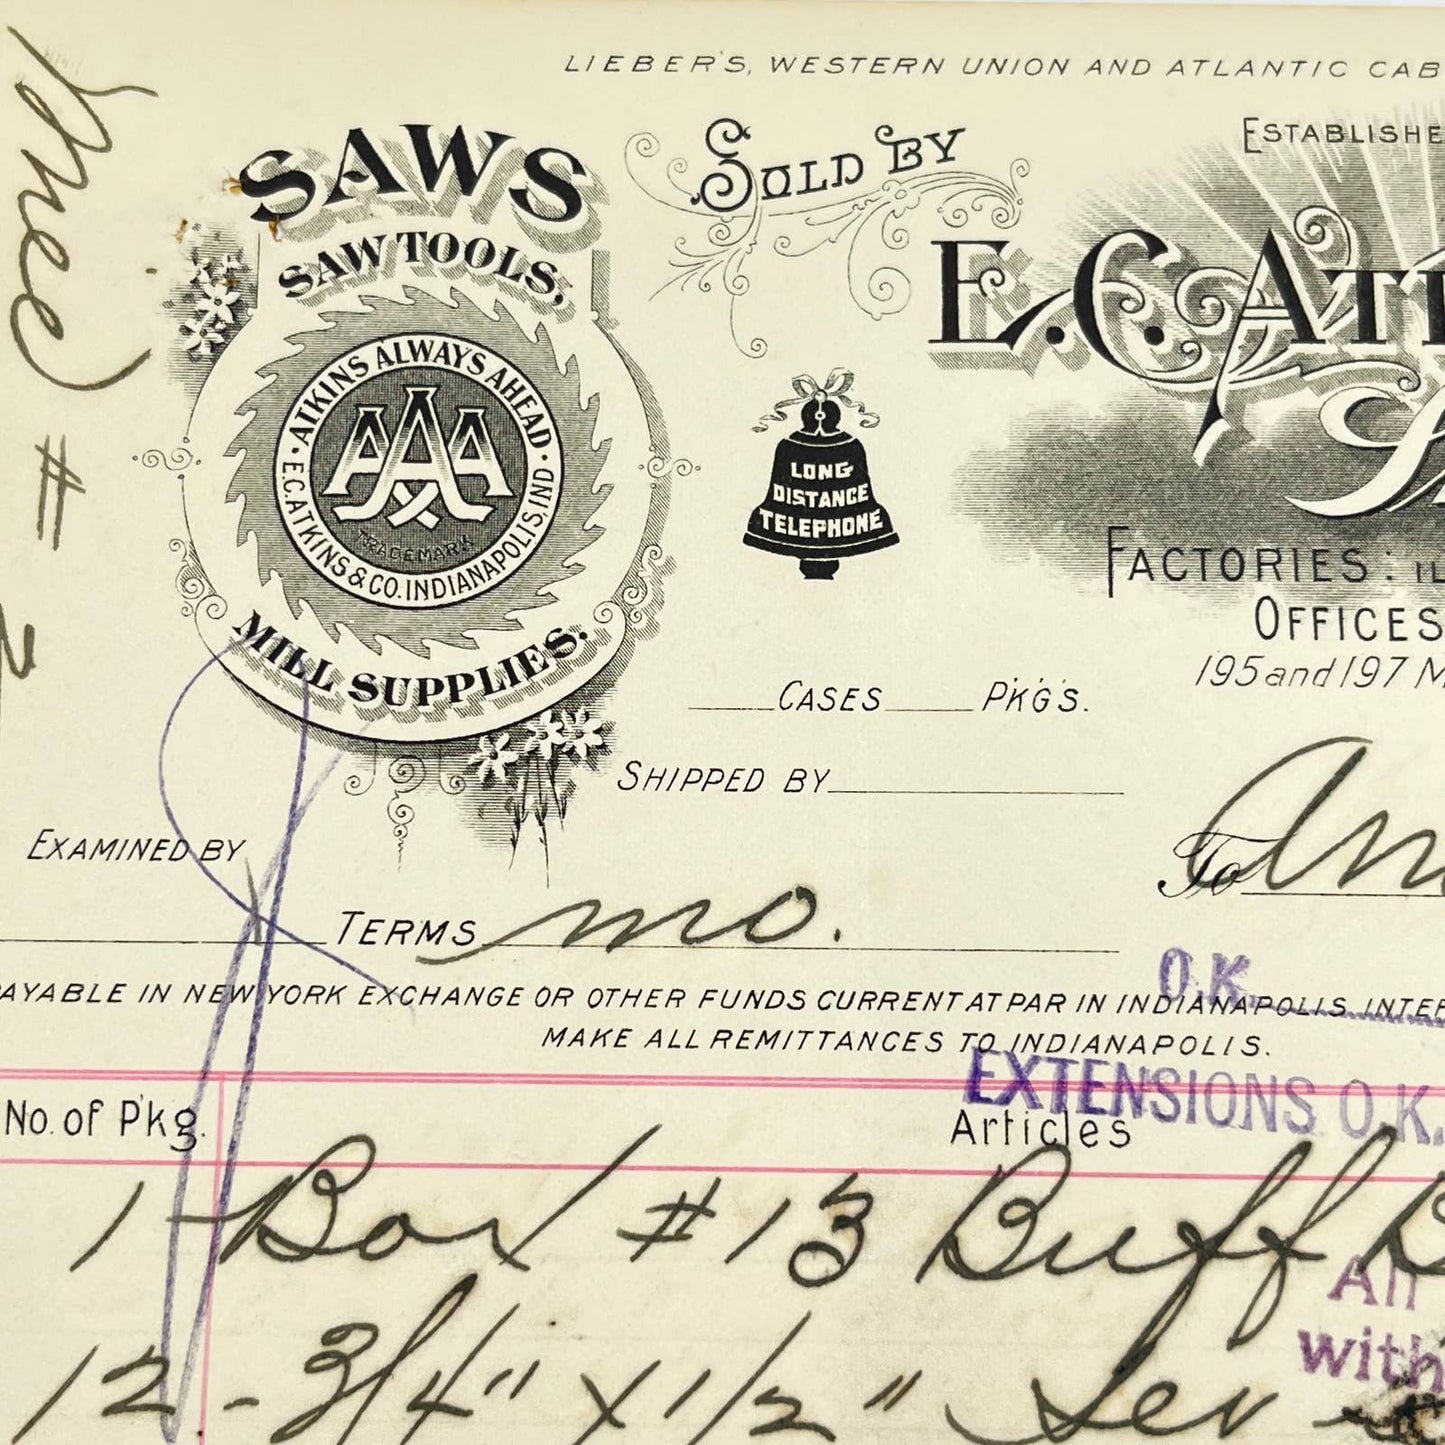 LIEBER'S, WESTERN UNION AND ATLANTIC CAB
SAWS
SAW TOOLS,
ATKINS ALWAYS AHEAD
AAA
TRADEMARK
E.C. ATKINS & CO. INDIANAPOLIS, IND
MILL SUPPLIES.
SOLD BY
ESTABLISHE
E.C. ATK
LONG
DISTANCE
TELEPHONE
FACTORIES:
OFFICES
195 and 197 M
CASES P'K'G'S.
SHIPPED BY
EXAMINED BY
To
TERMS mo.
O.K.
PAYABLE IN NEW YORK EXCHANGE OR OTHER FUNDS CURRENT AT PAR IN INDIANAPOLIS INTER
MAKE ALL REMITTANCES TO INDIANAPOLIS.
EXTENSIONS O.K.
No. of P'kg. Articles
1 - Box #13 Buff B
All
with
12 - 3/4" x 1/2"
# 2